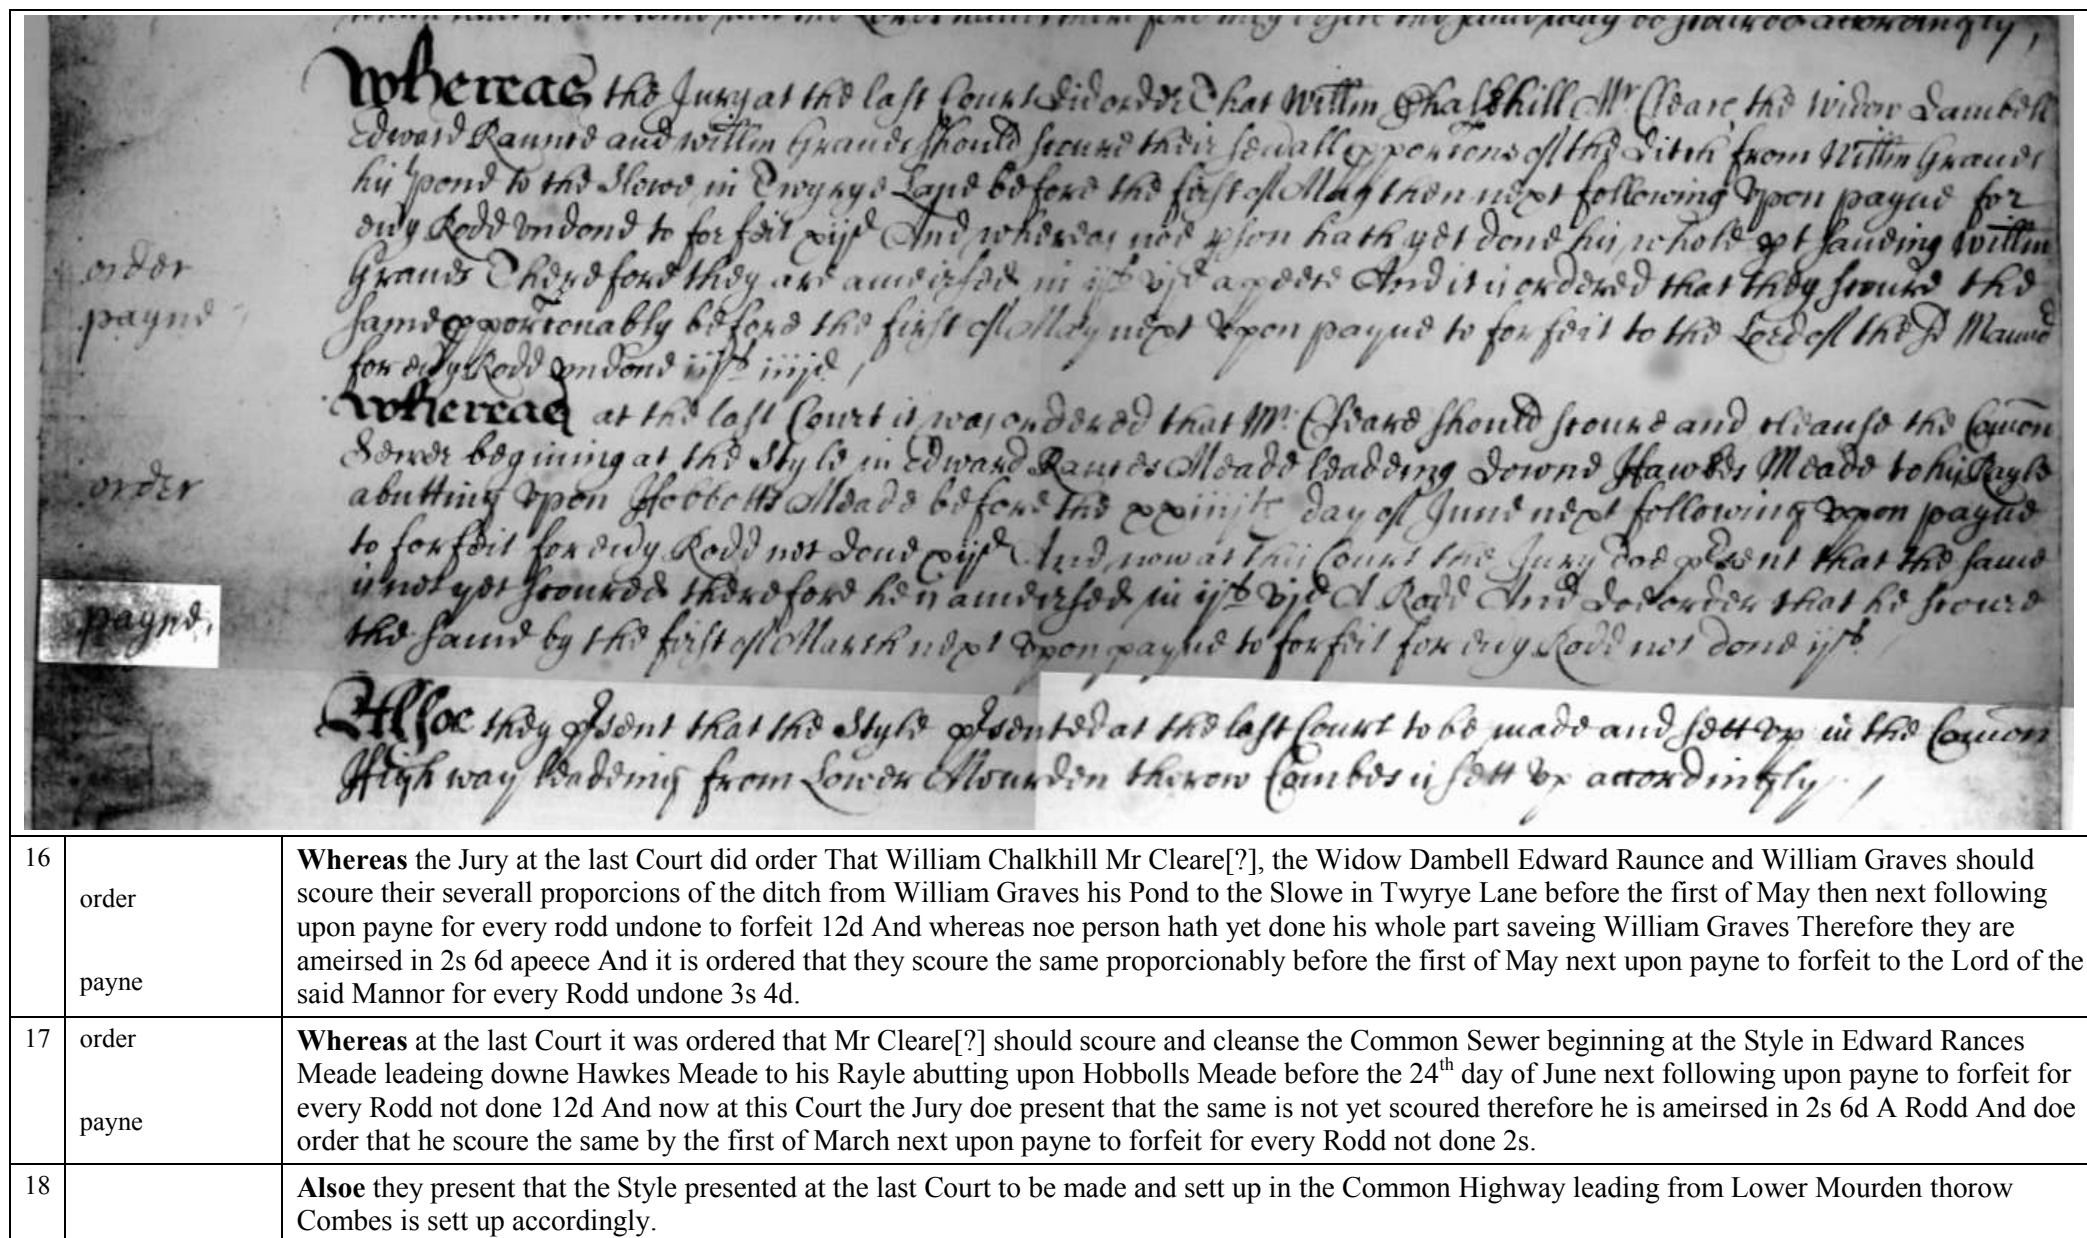 the same may be scoured accordingly,
Whereas the Jury at the last Court did order That Willm Chalkhill Mr Cleare, the Widow Dambell
Edward Raunce and Willm Graves should scoure their sevall pporcons of the Ditch from Willm Graves
his pond to the Slowe in Twyrye Lane before the first of May then next following upon payne for
evy Rodd undone to forfeit xijd And whereas noe pson hath yet done his whole pt saveing Willm
order
Graves Therefore they are ameirsed in ijs vjd apeece And it is ordered that they scoure the
payne
same pporconably before the first of May next upon payne to forfeit to the Lord of the sd Mannor
for evy Rodd undone iijs iiijd /
Whereas at the last Court it was ordered that Mr Cleare should scoure and cleanse the Comon
Sewer begining at the Style in Edward Rances Meade leadeing downe Hawkes Meade to his Rayle
order
abutting upon Hobbolls Meade before the xxiiijth day of June next following upon payne
to forfeit for evy Rodd not done xijd And now at this Court the Jury doe psent that the same
is not yet scoured therefore he is ameirsed in ijs vjd A Rodd And doe order that he scoure
payne,
the same by the first of March next upon payne to forfeit for evy Rodd not done ijs
Allsoe they psent that the Style psented at the last Court to be made and sett up in the Comon
High way leadeing from Lower Mourden thorow Combes is sett up accordingly /
16
order
payne
Whereas the Jury at the last Court did order That William Chalkhill Mr Cleare[?], the Widow Dambell Edward Raunce and William Graves should
scoure their severall proporcions of the ditch from William Graves his Pond to the Slowe in Twyrye Lane before the first of May then next following
upon payne for every rodd undone to forfeit 12d And whereas noe person hath yet done his whole part saveing William Graves Therefore they are
ameirsed in 2s 6d apeece And it is ordered that they scoure the same proporcionably before the first of May next upon payne to forfeit to the Lord of the
said Mannor for every Rodd undone 3s 4d.
17
order
payne
Whereas at the last Court it was ordered that Mr Cleare[?] should scoure and cleanse the Common Sewer beginning at the Style in Edward Rances
Meade leadeing downe Hawkes Meade to his Rayle abutting upon Hobbolls Meade before the 24th day of June next following upon payne to forfeit for
every Rodd not done 12d And now at this Court the Jury doe present that the same is not yet scoured therefore he is ameirsed in 2s 6d A Rodd And doe
order that he scoure the same by the first of March next upon payne to forfeit for every Rodd not done 2s.
18
Alsoe they present that the Style presented at the last Court to be made and sett up in the Common Highway leading from Lower Mourden thorow
Combes is sett up accordingly.